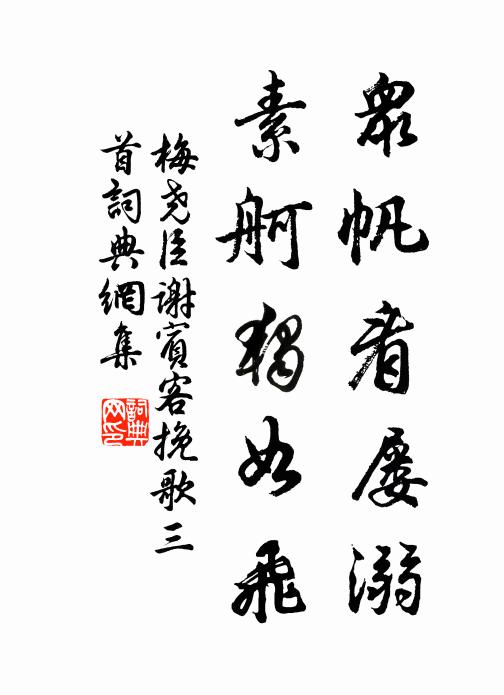 衆帆看屡溺
素舸獨如飛
梅尧臣谢賓客挽歌三
首詞典網集
詞典
网印